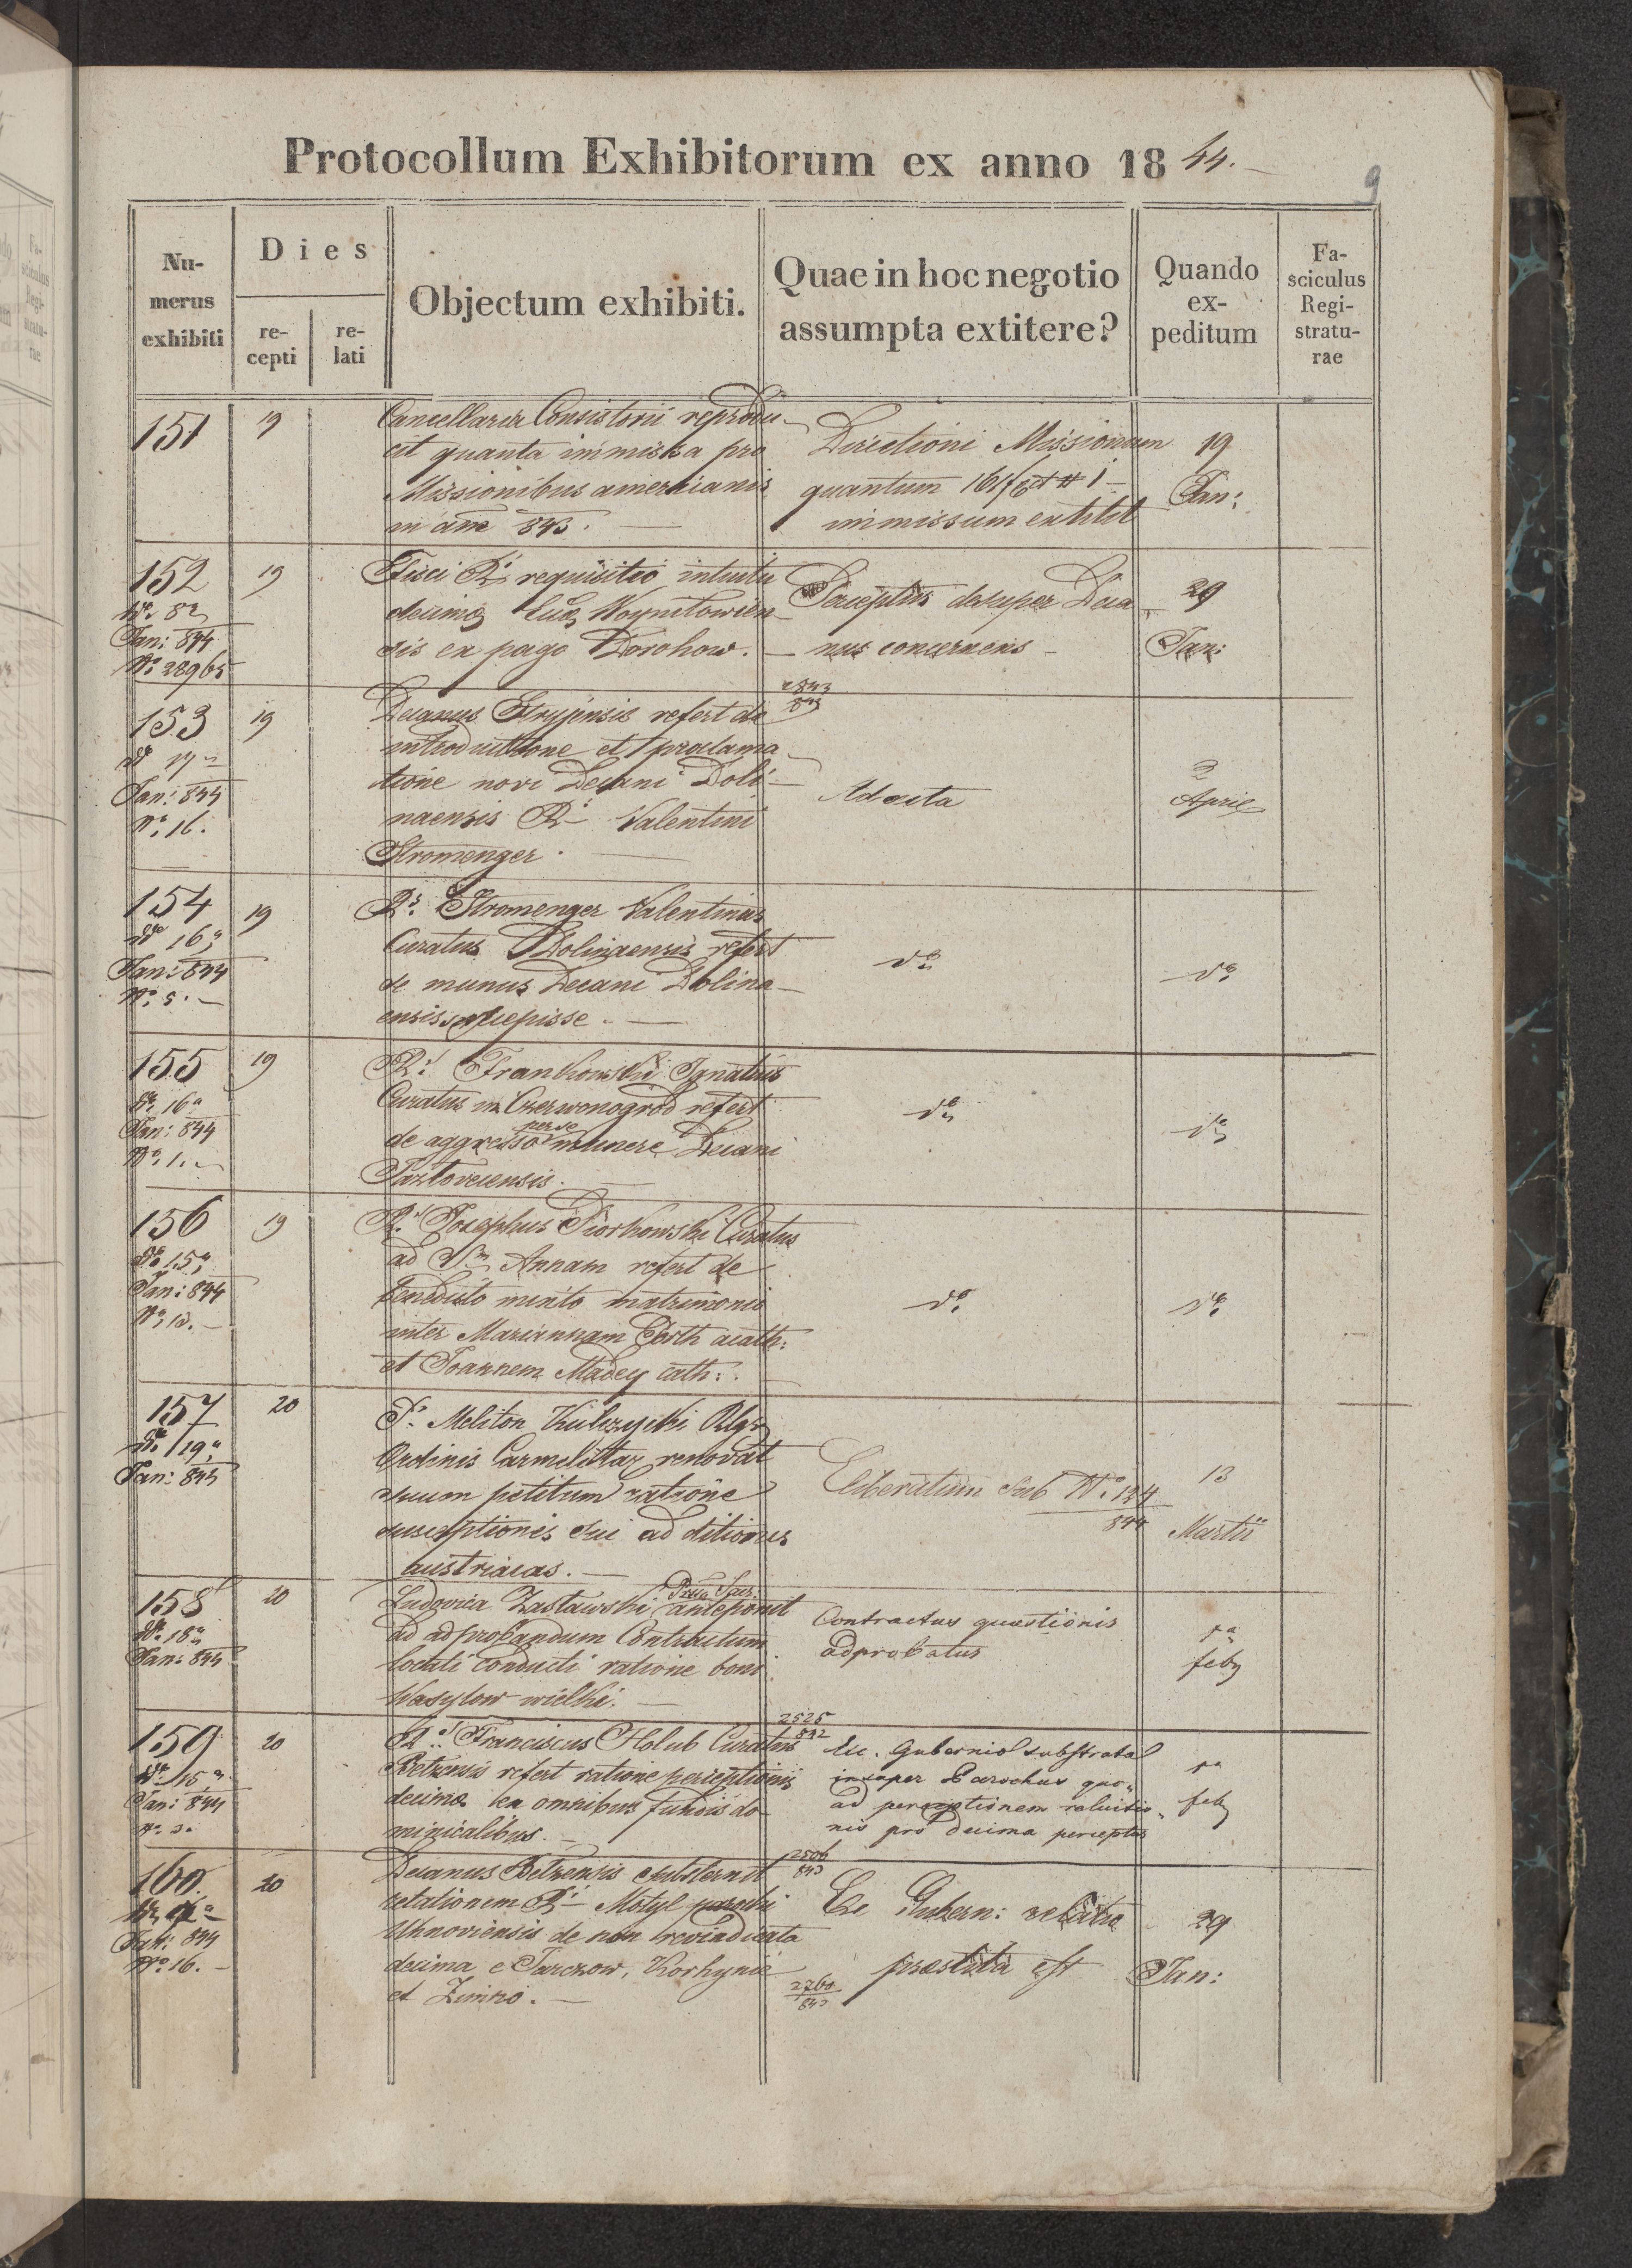 Protocollum Exhibitorum ex anno 1844.
9
Numerus exhibiti
Dies
recepti
relati
Objectum exhibiti.
Quae in hoc negotio assumpta extitere?
Quando expeditum
Fasciculus Registraturae
151
19
Cancellaria Consistorii reprodu-
cit quanta immissa pro
Missionibus
in 843.
Directioni Missionum
quantum
immissum extitit
19
Jan:
152
Jan: 844
No. 28965
19
Fisci Rs requisitio intuitu
decimæ
sis ex pago Dorohow.
Perceptis desuper Deca-
nus concernens
29
Jan:
153
Jan: 844
No. 16.
19
Decanus Stryjensis refert de
introductione et proclama-
tione novi Decani Doli-
naensis Rdi Valentini
Stromenger.
2843
843
Ad acta
3
April
154
do 16a
Jan: 844
No. 5.
19
Rs. Stromenger Valentinus
Curatus Dolinaensis refert
de munus Decani Dolina-
ensis suscepisse.
do
do
155
do 16a
Jan: 844
No. 1.
19
Rs. Frankowski Ignatius
Curatus in Czerwonogrod refert
de aggresso per se munere Decani
Jazlovecensis.
do
do
156
do 15a
Jan: 844
No. 13.
19
R. Josephus Piorkowski Curatus
ad Sm Annam refert de
benedicto mixto matrimonio
inter Mariannam acath:
et Joannem Madey cath:
do
do
157
do 19a
Jan: 844
20
P. Meliton Kulczycki Rlgs
Ordinis Carmelittar renovat
suum petitum ratione
susceptionis sui ad ditiones
austriacas.
sub No. 124
844
13
Martii
158
do 18a
Jan: 844
20
Ludovica Zastawski anteponit
ad adprobandum Contractum
locati conducti ratione boni
Wasylow wielki.
Contractus quæstionis
adprobatus
1a
feb
159
do 15a
Jan: 844
No. 3.
20
R. Franciscus Holub Curatus
Belzensis refert ratione perceptionis
decimæ ex omnibus fundis do-
minicalibus.
2525
842
Exc. Gubernio substrata
insuper Parochus quo-
ad perceptionem reluitio-
nis pro decima perceptus
1a
feb
160.
Jan: 844
No. 16.
20
Decanus Belzensis substernit
relationem Rdi Motyl parochi
Uhnoviensis de non revindicata
decima e Tarczow, Korhynie
et Zimno.
2506
843
2760
843
Exc Gubern: relatio
præstita est
29
Jan: